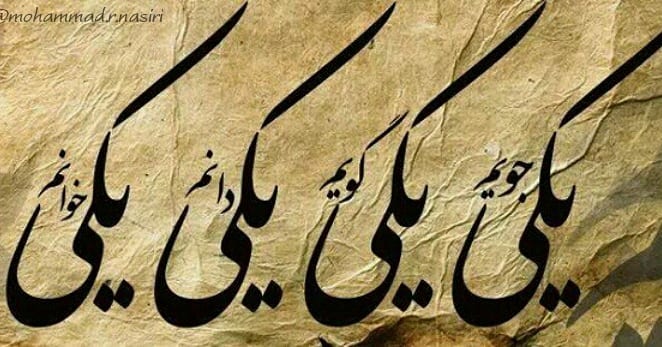 @mohammad.r.nasiri
یکی جویم یکی گویم یکی دانم یکی خوانم